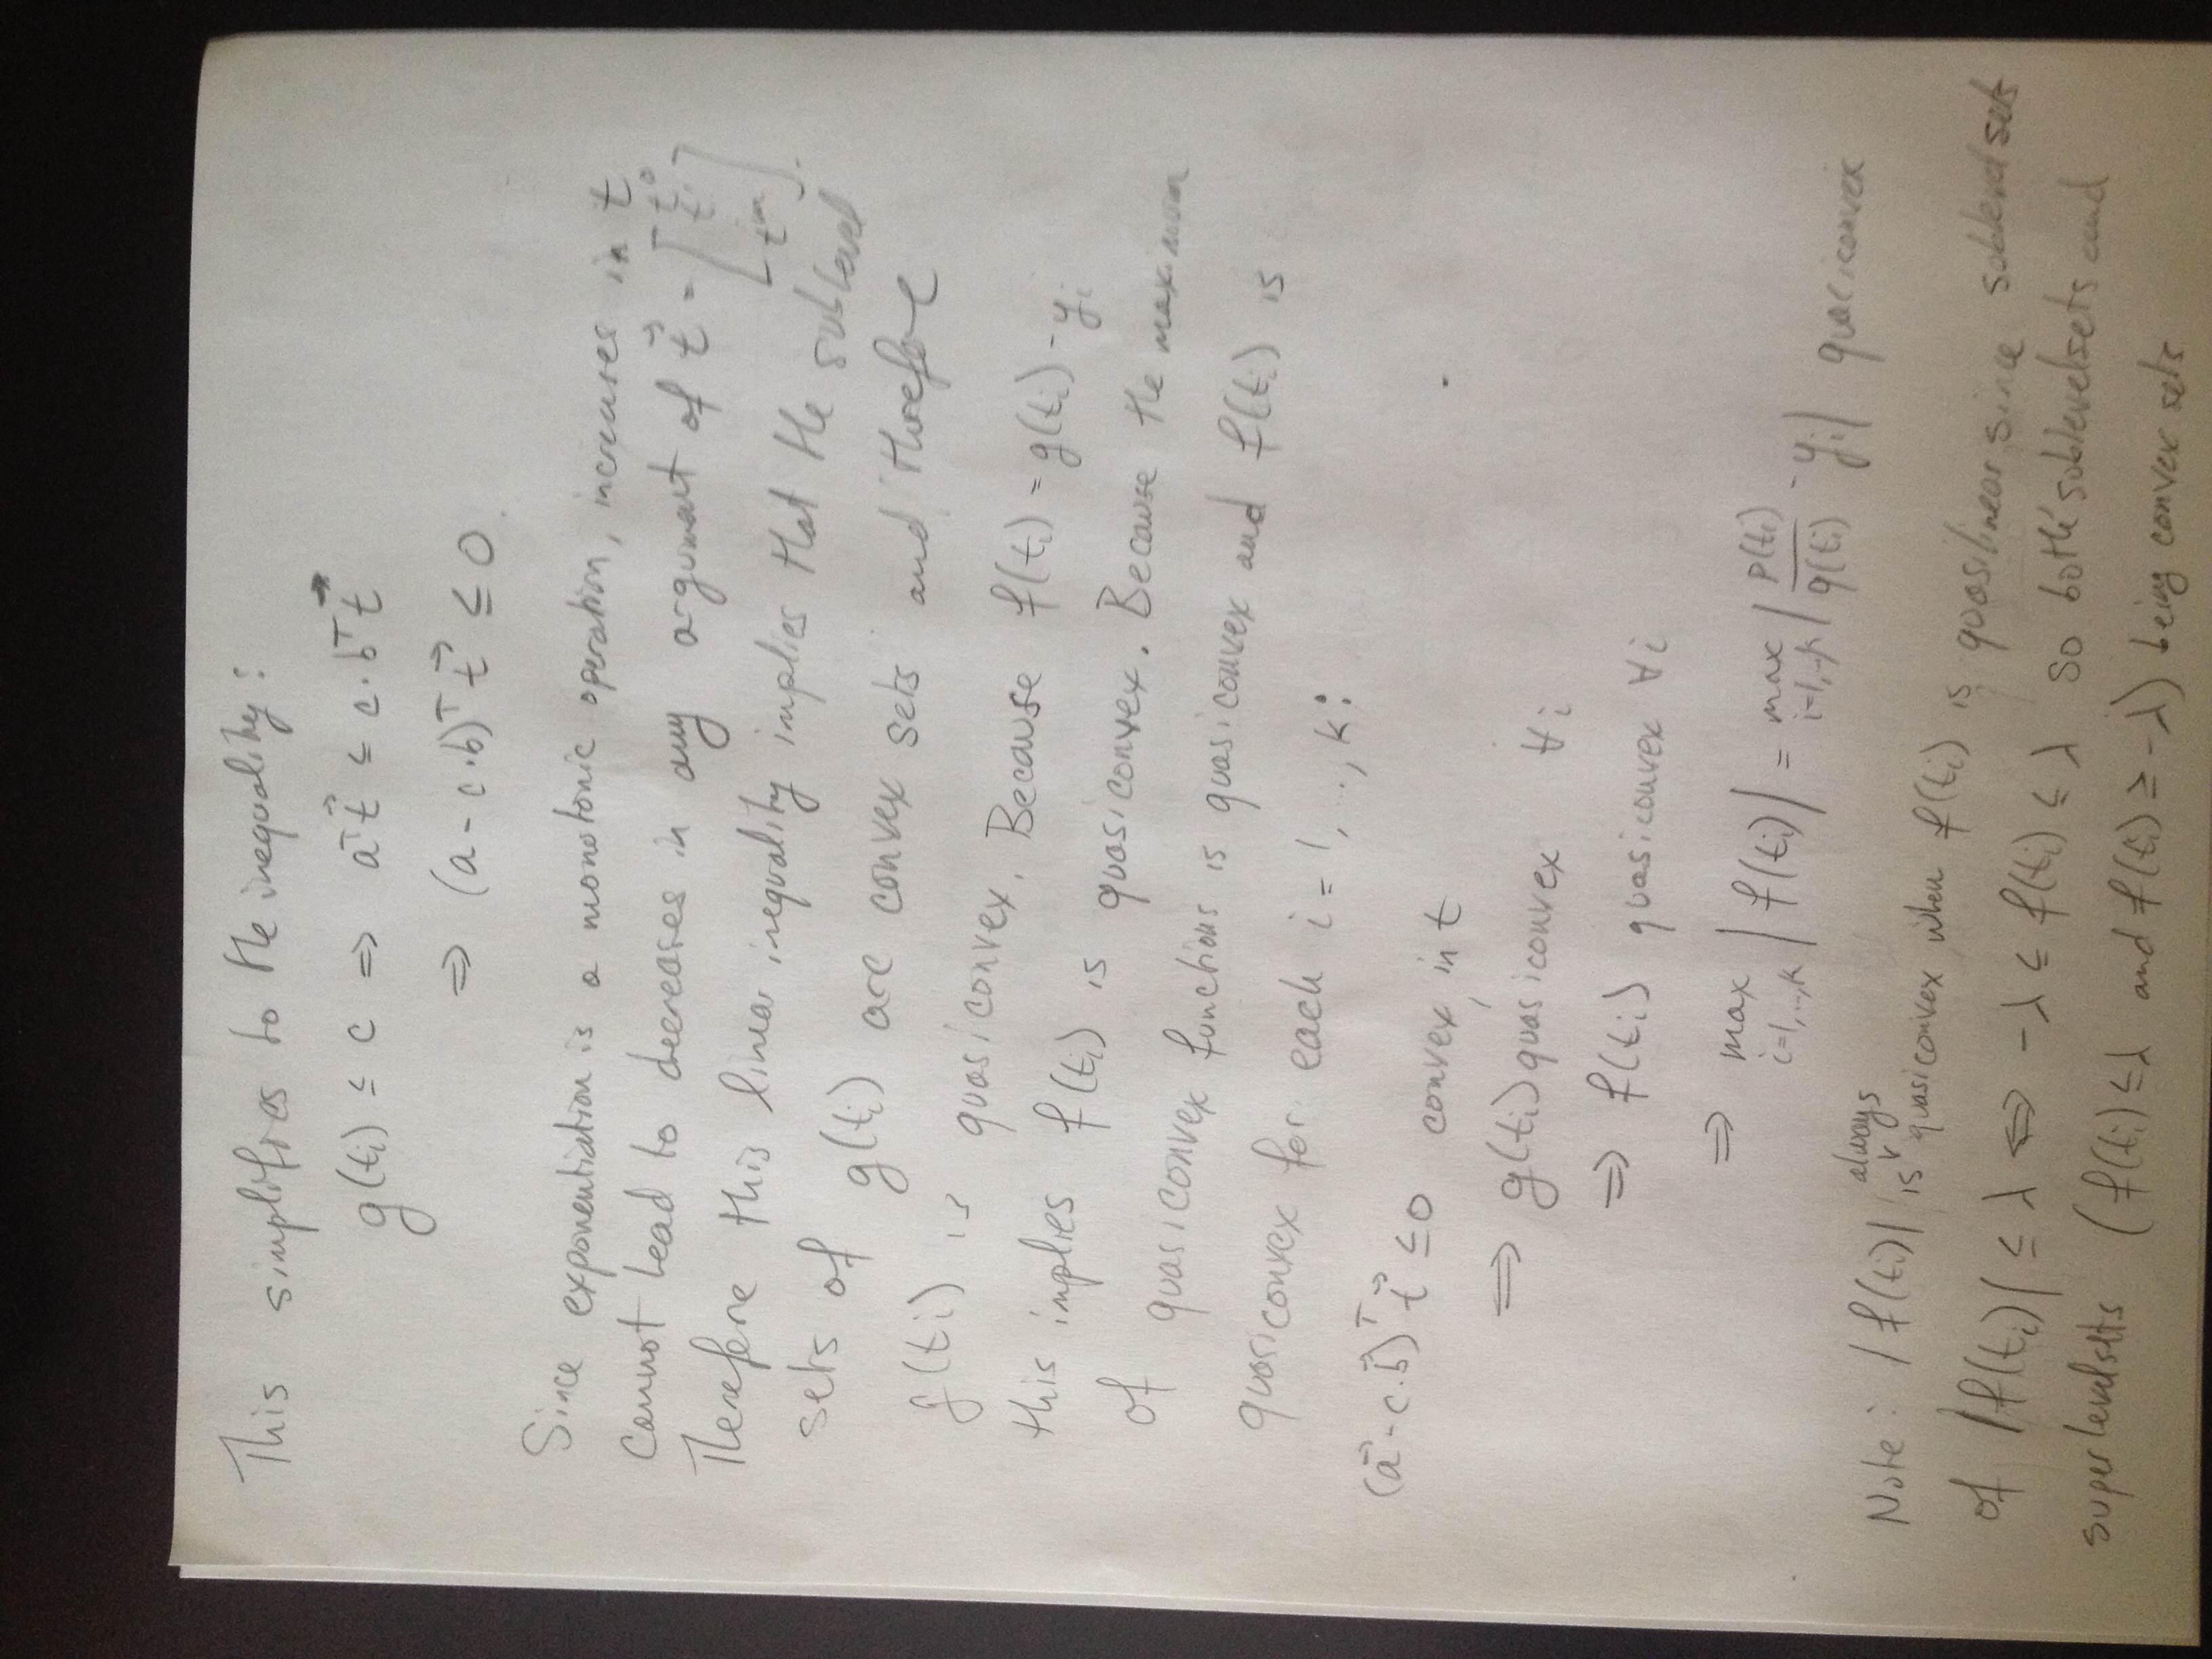 This simplifies to the inequality:
g(tᵢ) ≤ c ⇒ aᵀt⃗ ≤ c·bᵀt⃗
⇒ (a - c·b)ᵀ t⃗ ≤ 0.
Since exponentiation is a monotonic operation, increases in t
cannot lead to decreases in any argument of t⃗ = [t⁰ t¹ ... tᵐ].
Therefore this linear inequality implies that the sublevel
sets of g(tᵢ) are convex sets and therefore
g(tᵢ) is quasiconvex. Because f(tᵢ) = g(tᵢ) - yᵢ
this implies f(tᵢ) is quasiconvex. Because the maximum
of quasiconvex functions is quasiconvex and f(tᵢ) is
quasiconvex for each i = 1, .., k:
(a⃗ - c.b⃗)ᵀ t⃗ ≤ 0 convex in t
⇒ g(tᵢ) quasiconvex ∀i
⇒ f(tᵢ) quasiconvex ∀i
⇒ max i=1,..,k |f(tᵢ)| = max i=1,..,k |p(tᵢ)/q(tᵢ) - yᵢ| quasiconvex
Note: |f(tᵢ)| is always quasiconvex when f(tᵢ) is quasilinear since sublevel sets
of |f(tᵢ)| ≤ λ ⇔ -λ ≤ f(tᵢ) ≤ λ so both sublevelsets and
superlevelsets (f(tᵢ) ≤ λ and f(tᵢ) ≥ -λ) being convex sets